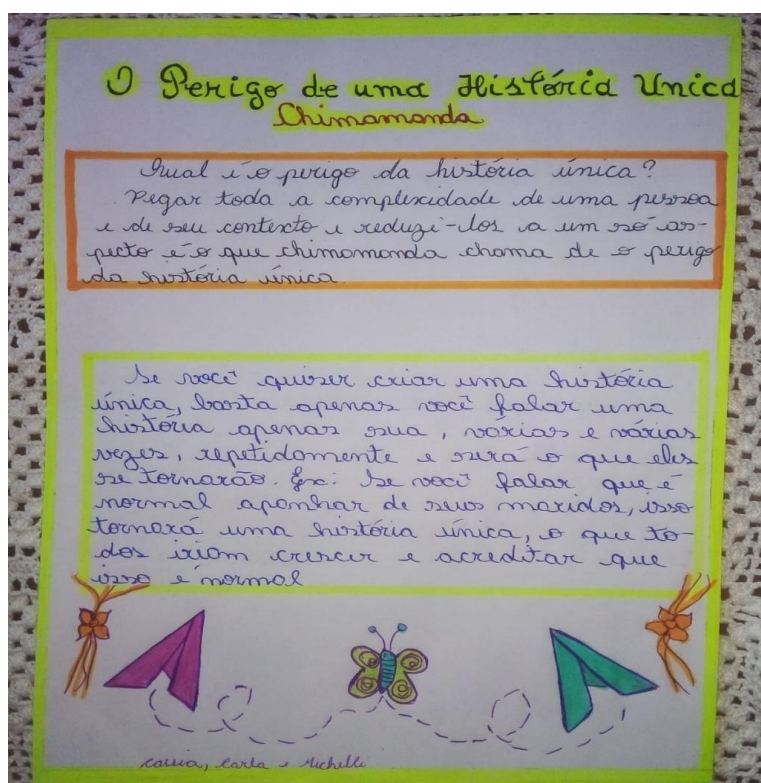 O Perigo de uma História Unica
Chimamanda
Qual é o perigo da história única?
Pegar toda a complexidade de uma pessoa
e de seu contexto e reduzi-los a um só as-
pecto é o que chimamanda chama de o perigo
da história única.
Se você quiser criar uma história
única, basta apenas você falar uma
história apenas sua, várias e várias
vezes, repetidamente e será o que eles
se tornarão. Ex: Se você falar que é
normal apanhar de seus maridos, isso
tornará uma história única, o que to-
dos iriam crescer e acreditar que
isso é normal
Cassia, Carla e Michelle